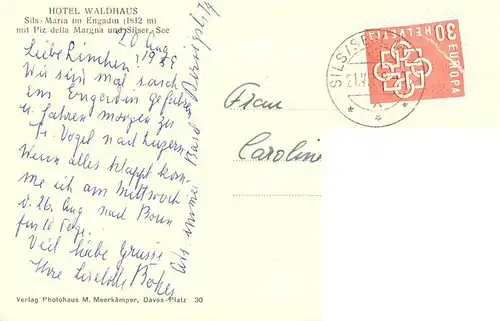 HOTEL WALDHAUS
Sils-Maria im Engadin (1812 m)
mit Piz della Margna und Silser See
20 Aug
1959
Wir sind mal rasch
ins Engadin gefahren
u. fahren morgen zu
Fr. Vogel nach Luzern.
Wenn alles klappt kom-
me ich am Mittwoch
d. 26. Aug nach Bonn
für 10 Tage.
Viel liebe Grüsse
Ihre Liselotte
Verlag Photohaus M. Meerkämper, Davos-Platz 30
Frau
Caroline
SILS/SE
HELVETIA
EUROPA
30